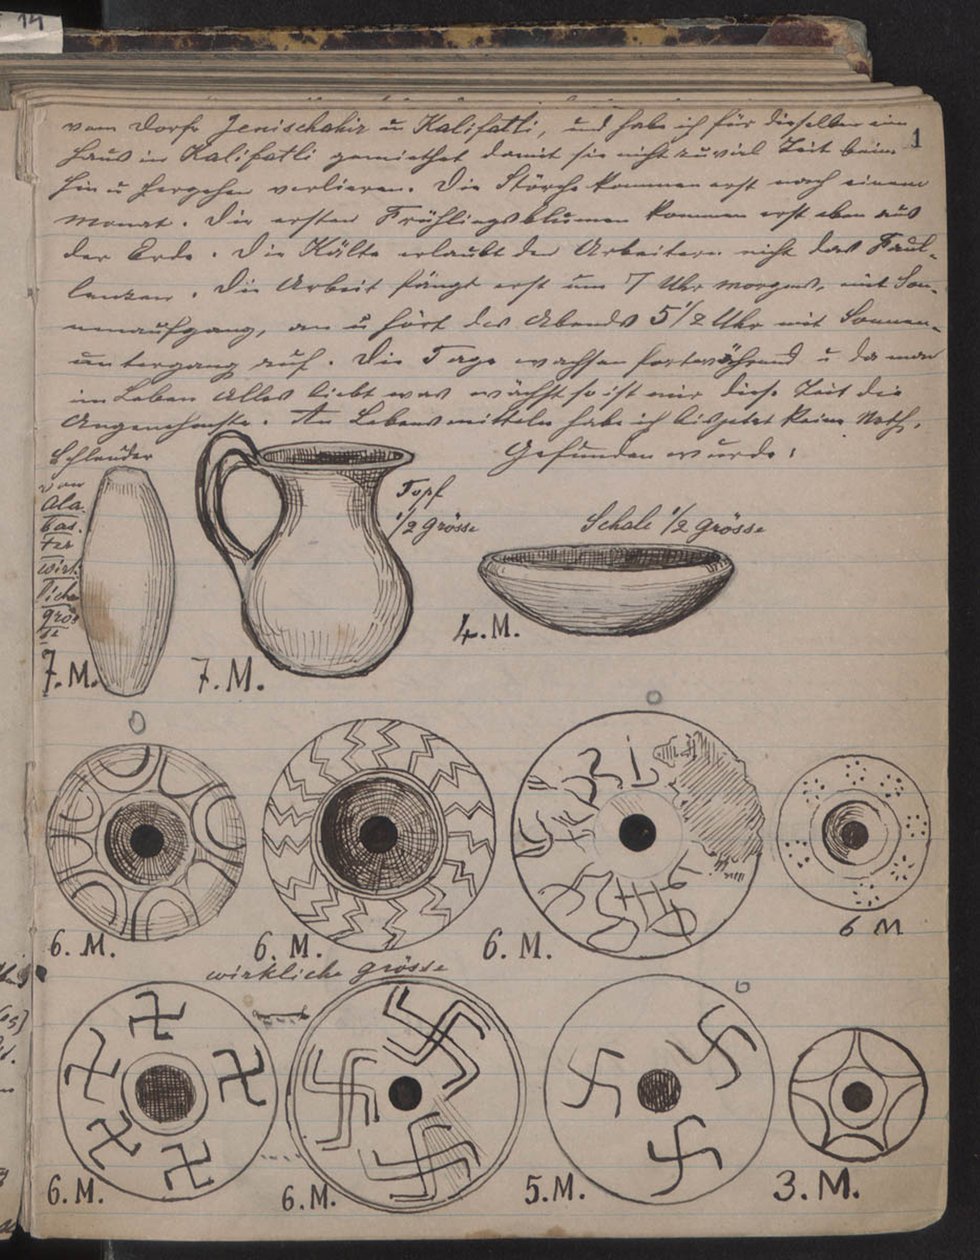 14
1
vom Dorfe Jenischahir u Kalifatli, und habe ich für dieselben ein
Haus in Kalifatli gemiethet damit sie nicht zu viel Zeit beim
Hin u Hergehen verlieren. Die Störche kommen erst nach einem
Monat. Die ersten Frühlingsblumen kommen erst eben aus
der Erde. Die Kälte erlaubt den Arbeitern nicht das Faul-
lenzen. Die Arbeit fängt erst um 7 Uhr morgens, mit Son-
nenaufgang, an u hört des Abends 5 1/2 Uhr mit Sonnen-
untergang auf. Die Tage wachsen fortwährend u da man
im Leben Alles liebt was wächst so ist mir diese Zeit die
Angenehmste. An Lebensmitteln habe ich bis jetzt keine Noth.
Gefunden wurde:
Schleuder
von
Ala-
bas-
ter
wirk-
liche
grös
se
7. M.
Topf
1/2 grösse
7. M.
Schale 1/2 grösse
4. M.
6. M.
6. M.
6. M.
6 M
wirkliche grösse
6. M.
6. M.
5. M.
3. M.